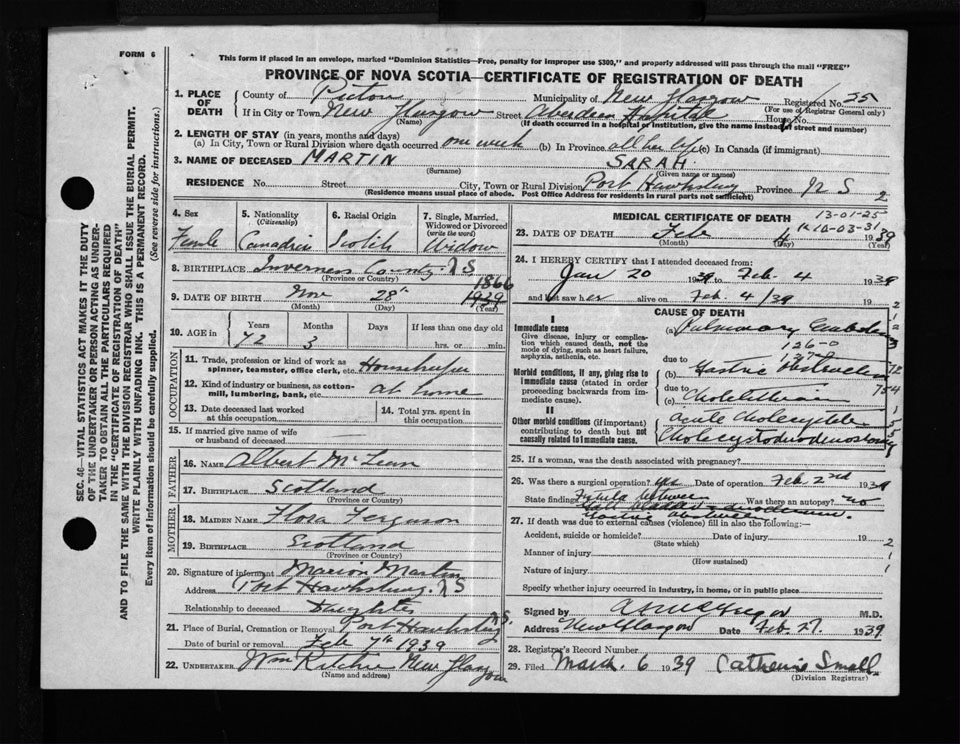 FORM 6
This form if placed in an envelope, marked "Dominion Statistics—Free, penalty for improper use $300," and properly addressed will pass through the mail "FREE"
PROVINCE OF NOVA SCOTIA—CERTIFICATE OF REGISTRATION OF DEATH
1. PLACE OF DEATH
County of Pictou Municipality of New Glasgow Registered No. 35
(For use of Registrar General only)
If in City or Town New Glasgow Street Aberdeen Hospital House No.
(Name) (If death occurred in a hospital or institution, give the name instead of street and number)
2. LENGTH OF STAY (in years, months and days)
(a) In City, Town or Rural Division where death occurred one week (b) In Province all her life (c) In Canada (if immigrant)
3. NAME OF DECEASED MARTIN SARAH
(Surname) (Given name or names)
RESIDENCE No. Street City, Town or Rural Division Port Hawksbury Province N S 2
(Residence means usual place of abode. Post Office Address for residents in rural parts not sufficient)
4. Sex
Female
5. Nationality
(Citizenship)
Canadian
6. Racial Origin
Scotch
7. Single, Married, Widowed or Divorced
(write the word)
Widow
8. BIRTHPLACE Inverness County N S
(Province or Country)
1866
9. DATE OF BIRTH Nov 28th 1939
(Month) (Day) (Year)
10. AGE in
Years Months Days If less than one day old
72 3 hrs. or min.
OCCUPATION
11. Trade, profession or kind of work as spinner, teamster, office clerk, etc. Housekeeper
12. Kind of industry or business, as cotton-mill, lumbering, bank, etc. at home
13. Date deceased last worked at this occupation
14. Total yrs. spent in this occupation
15. If married give name of wife or husband of deceased
FATHER
16. NAME Albert McLean
17. BIRTHPLACE Scotland
(Province or Country)
MOTHER
18. MAIDEN NAME Flora Ferguson
19. BIRTHPLACE Scotland
(Province or Country)
20. Signature of informant Marion Martin
Address Port Hawksbury N S
Relationship to deceased Daughter
21. Place of Burial, Cremation or Removal Port Hawksbury N.S.
Date of burial or removal Feb 7th 1939
22. UNDERTAKER Wm Ritchie New Glasgow
(Name and address)
MEDICAL CERTIFICATE OF DEATH
13-01-25
23. DATE OF DEATH Feb 4 1939
(Month) (Day) (Year)
24. I HEREBY CERTIFY that I attended deceased from:
Jan 20 1939 to Feb. 4 1939
and last saw her alive on Feb 4/39 19
CAUSE OF DEATH
I
Immediate cause
Give disease, injury or complication which caused death, not the mode of dying, such as heart failure, asphyxia, asthenia, etc.
(a) Pulmonary Embolism
126-0
due to
Morbid conditions, if any, giving rise to immediate cause (stated in order preceding backwards from immediate cause).
(b) Gastric Obstruction
due to
(c) Cholelithiasis
II
Other morbid conditions (if important) contributing to death but not causally related to I immediate cause.
Acute Cholecystitis
Cholecystoduodenostomy
25. If a woman, was the death associated with pregnancy?
26. Was there a surgical operation? yes Date of operation Feb 2nd 1939
State findings Fistula between Was there an autopsy? no
Gall bladder & duodenum.
27. If death was due to external causes (violence) fill in also the following:—
Accident, suicide or homicide? Date of injury 19
(State which)
Manner of injury
(How sustained)
Nature of injury
Specify whether injury occurred in industry, in home, or in public place
Signed by M.D.
Address New Glasgow Date Feb. 27. 1939
28. Registrar's Record Number
29. Filed March 6 1939 Catherine Small
(Division Registrar)
SEC. 46—VITAL STATISTICS ACT MAKES IT THE DUTY OF THE UNDERTAKER OR PERSON ACTING AS UNDERTAKER TO OBTAIN ALL THE PARTICULARS REQUIRED IN THE "CERTIFICATE OF REGISTRATION OF DEATH" AND TO FILE THE SAME WITH THE DIVISION REGISTRAR WHO SHALL ISSUE THE BURIAL PERMIT.
WRITE PLAINLY WITH UNFADING INK. THIS IS A PERMANENT RECORD.
Every item of information should be carefully supplied. (See reverse side for instructions.)